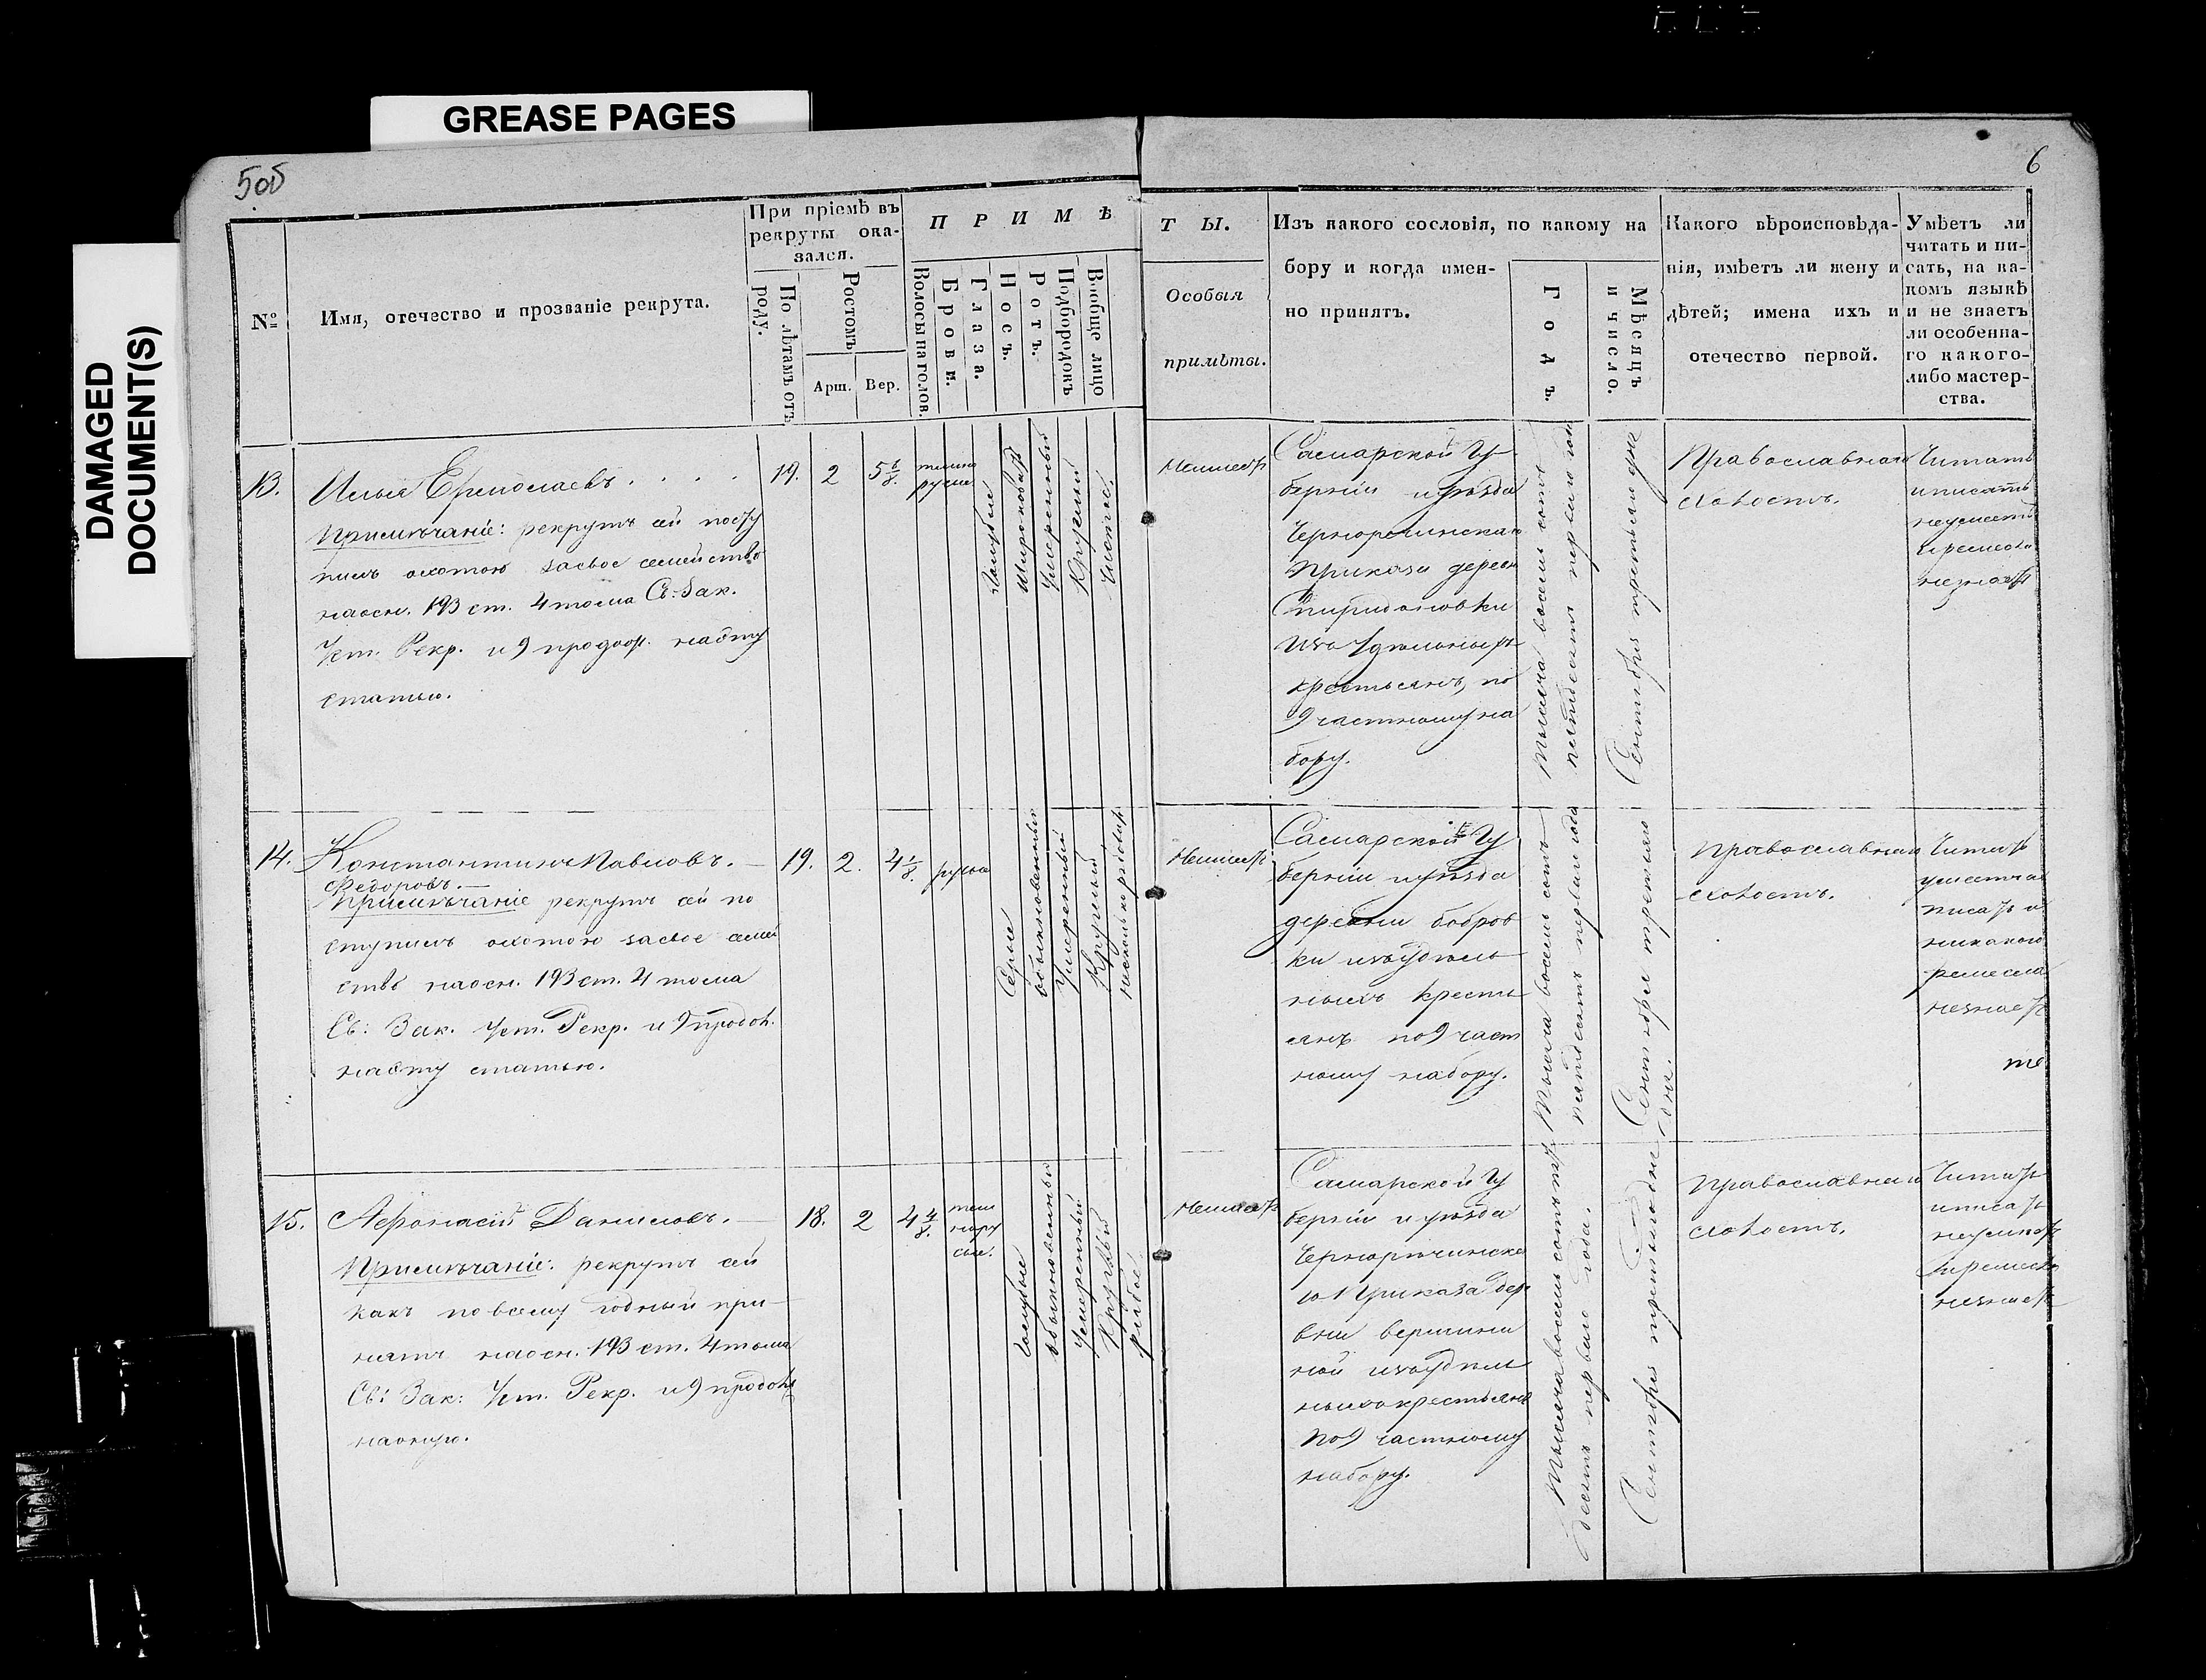 GREASE PAGES
DAMAGED
DOCUMENT(S)
5об
6
№
Имя, отечество и прозваніе рекрута.
При пріемѣ въ
рекруты ока-
зался.
По лѣтамъ отъ
роду.
Ростомъ
Арш.
Вер.
ПРИМѢ
Волосы на голов.
Брови.
Глаза.
Носъ.
Ротъ.
Подбородокъ
Вообще лицо
ТЫ.
Особыя
примѣты.
Изъ какого сословія, по какому на
бору и когда имен-
но принятъ.
Годъ.
Мѣсяцъ
и число.
Какого вѣроисповѣда-
нія, имѣетъ ли жену и
дѣтей; имена ихъ и
отечество первой.
Умѣетъ ли
читать и пи-
сать, на ка-
комъ языкѣ
и не знаетъ
ли особенна-
го какого-
либо мастер-
ства.
13.
Илья Ермолаевъ . . . .
Примѣчаніе: рекрутъ сей посту
пилъ охотою засвое семейство
наосн. 193 ст. 4 тома Св: Зак.
Уст. Рекр. и 9 продолж. наэту
статью.
19.
2
5 6/8.
темно
русые
Голубые
Широковатъ
Умеренный
Круглый
Чистое.
Неимеетъ
Самарской Гу
берніи иуезда
Чернореченскаго
Приказа деревни
Спиридоновки
изъ Удельныхъ
крестьянъ, по
9 частному на
бору.
Тысяча восемь сотъ
пятьдесятъ перваго года
Сентября третьяго дня
Православнаго
холостъ.
Читать
иписать
неумеетъ
иремесла
незнаетъ
14.
Константинъ Павловъ. —
Федоровъ. —
Примѣчаніе рекрутъ сей по
ступилъ охотою засвое семей
ство наосн. 193 ст. 4 тома
Св: Зак. Уст. Рекр. и 9 продол.
наэту статью.
19.
2.
4 1/8.
русые
Серые
обыкновенный
Умеренный
Круглый
несколько рябоват
Неимеетъ
Самарской Гу
берніи иуезда
деревни Бобров
ки изъудель
ныхъ кресть
янъ по 9 част
ному набору.
Тысяча восемь сотъ
пятьдесятъ перваго года
Сентября третьяго
дня.
Православнаго
холостъ.
Читать
умеетъ а
писать и
никакого
ремесла
незнаетъ
15.
Афонасій Даниловъ. —
Примѣчаніе: рекрутъ сей
какъ по всему годный при-
нятъ наосн. 193 ст. 4 тома
Св: Зак: Уст. Рекр. и 9 продолж
наоную.
18.
2
4 4/8.
тем
нору
сые.
Голубые
обыкновенный
Умеренный
Круглый
рябое
Неимеетъ
Самарской Гу
берніи и уезда
Чернореченска
го Приказа дер
вни Вершини
ной изъудель
ныхъ крестьянъ
по 9 частному
набору.
Тысяча восемь сотъ пять
десятъ перваго года.
Сентября третьяго дня
Православнаго
холостъ.
Читать
иписать
неумеетъ
иремесла
незнаетъ